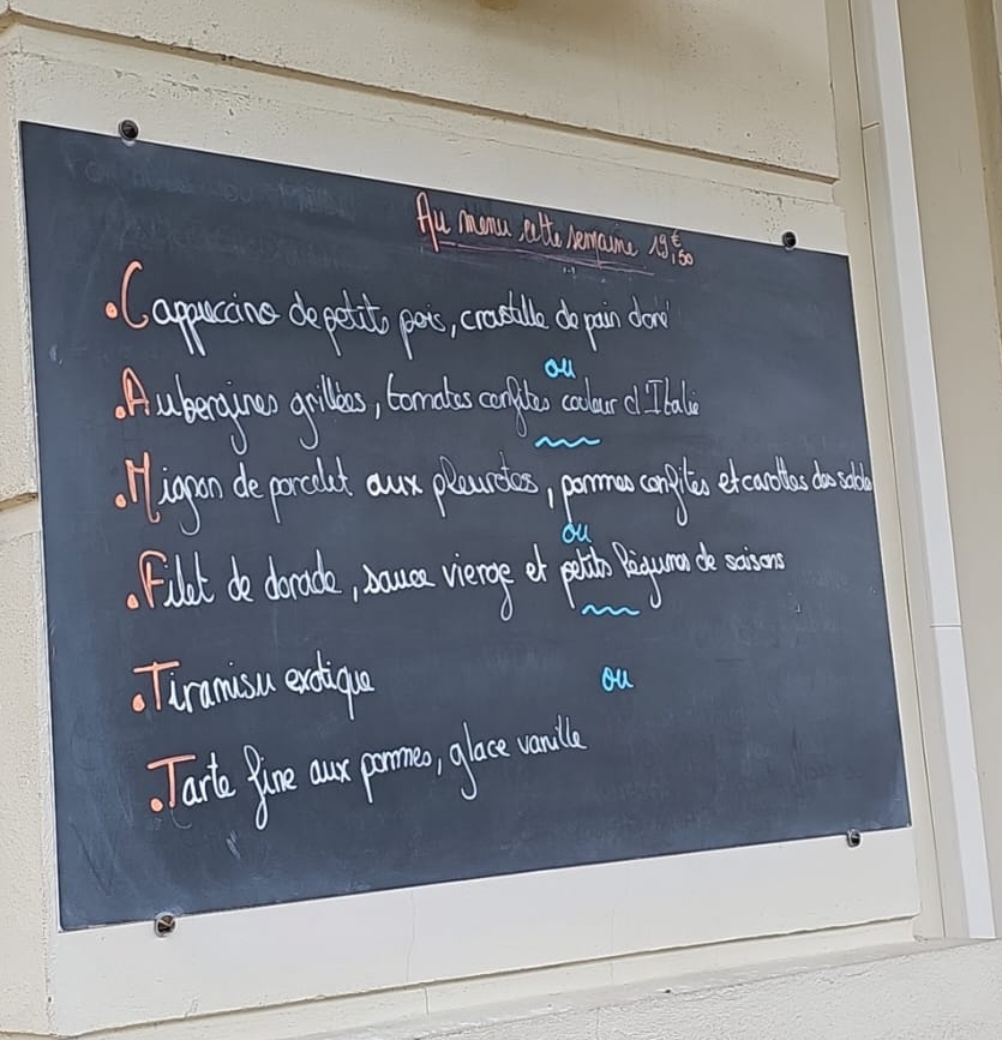 Au menu cette semaine 19€,50
• Cappuccino de petits pois, croustille de pain doré
ou
• Aubergines grillées, tomates confites couleur d'Italie
• Mignon de porcelet aux pleurotes, pommes confites et carottes des sables
ou
• Filet de dorade, sauce vierge et petits légumes de saisons
• Tiramisu exotique
ou
• Tarte fine aux pommes, glace vanille